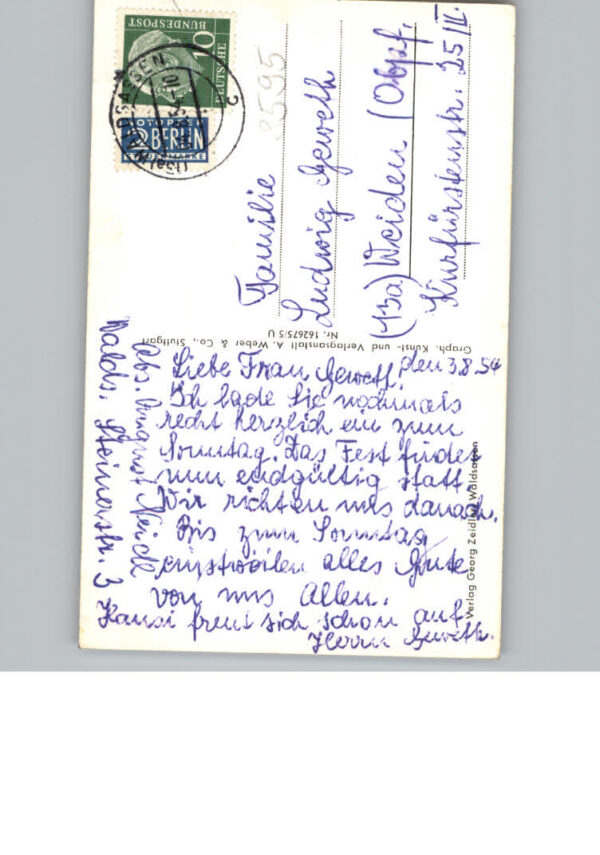 10
DEUTSCHE
BUNDESPOST
NOTOPFER
2 BERLIN
STEUERMARKE
WALDSASSEN
8595
Familie
Ludwig Geweth
(13a) Weiden (Obpf.
Kurfürstenstr. 25/II.
Graph. Kunst- und Verlagsanstalt A. Weber & Co., Stuttgart
Nr. 162675/5 U
Verlag Georg Zeidler Waldsassen
den 3.8.54
Liebe Frau Geweth.
Ich lade Sie nochmals
recht herzlich ein zum
Sonntag. Das Fest findet
nun endgültig statt.
Wir richten uns danach.
Bis zum Sonntag
einstweilen alles Gute
von uns Allen.
Hansi freut sich schon auf
Herrn Geweth.
Abs.
Walds. Steinerstr. 3